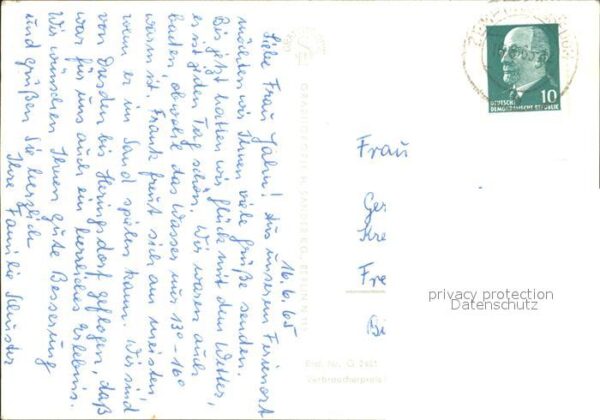 16.6.65
Liebe Frau Jahn! Aus unserem Ferienort
möchten wir Ihnen viele Grüße senden.
Bis jetzt hatten wir Glück mit dem Wetter,
es ist jeden Tag schön. Wir waren auch
baden obwohl das Wasser nur 13°-16°
warm ist. Frank freut sich am meisten,
wenn er im Sand spielen kann. Wir sind
von Dresden bis Heringsdorf geflogen, daß
war für uns auch ein herrliches Erlebnis.
Wir wünschen Ihnen gute Besserung
und grüßen Sie herzlich
Ihre Familie Schuster
GRAPHOKOPIE H. SANDER KG, BERLIN
Best. Nr. G 2461
Verbraucherpreis
10
DEUTSCHE
DEMOKRATISCHE REPUBLIK
Frau
Ger
Kre
Fre
privacy protection
Datenschutz